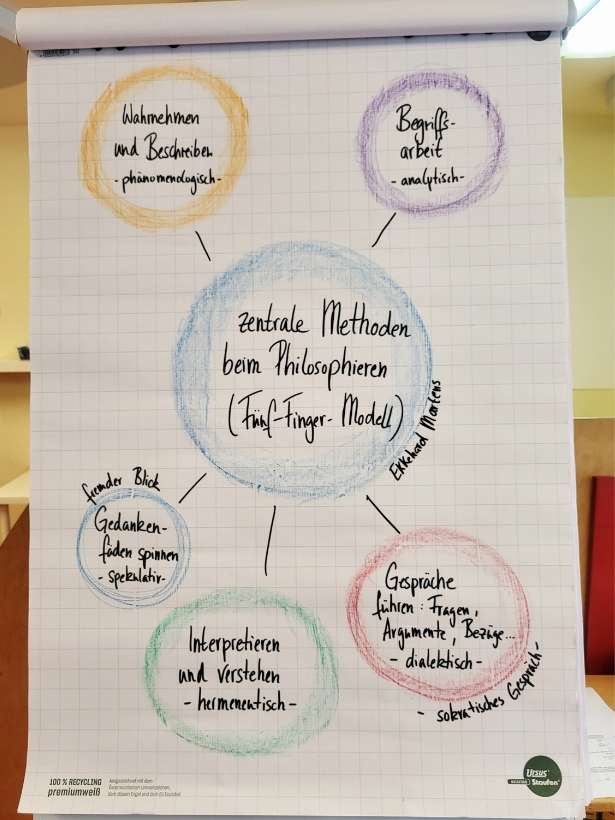 Wahrnehmen
und Beschreiben
- phänomenologisch -
Begriffs-
arbeit
- analytisch -
zentrale Methoden
beim Philosophieren
(Fünf-Finger-Modell)
Ekkehard Martens
fremder Blick
Gedanken-
fäden spinnen
- spekulativ -
Gespräche
führen: Fragen,
Argumente, Bezüge...
- dialektisch -
- sokratisches Gespräch -
Interpretieren
und verstehen
- hermeneutisch -
100 % RECYCLING
premiumweiß
Ursus
Staufen